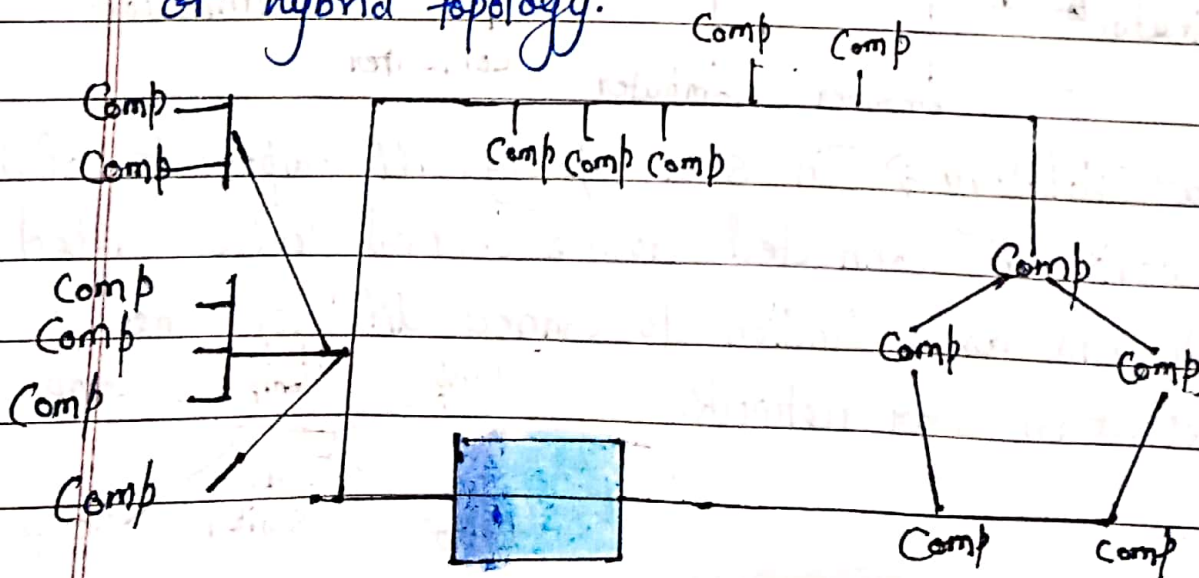 of hybrid topology.
Comp Comp
Comp
Comp
Comp Comp Comp
Comp
Comp
Comp
Comp
Comp
Comp
Comp
Comp
Comp Comp